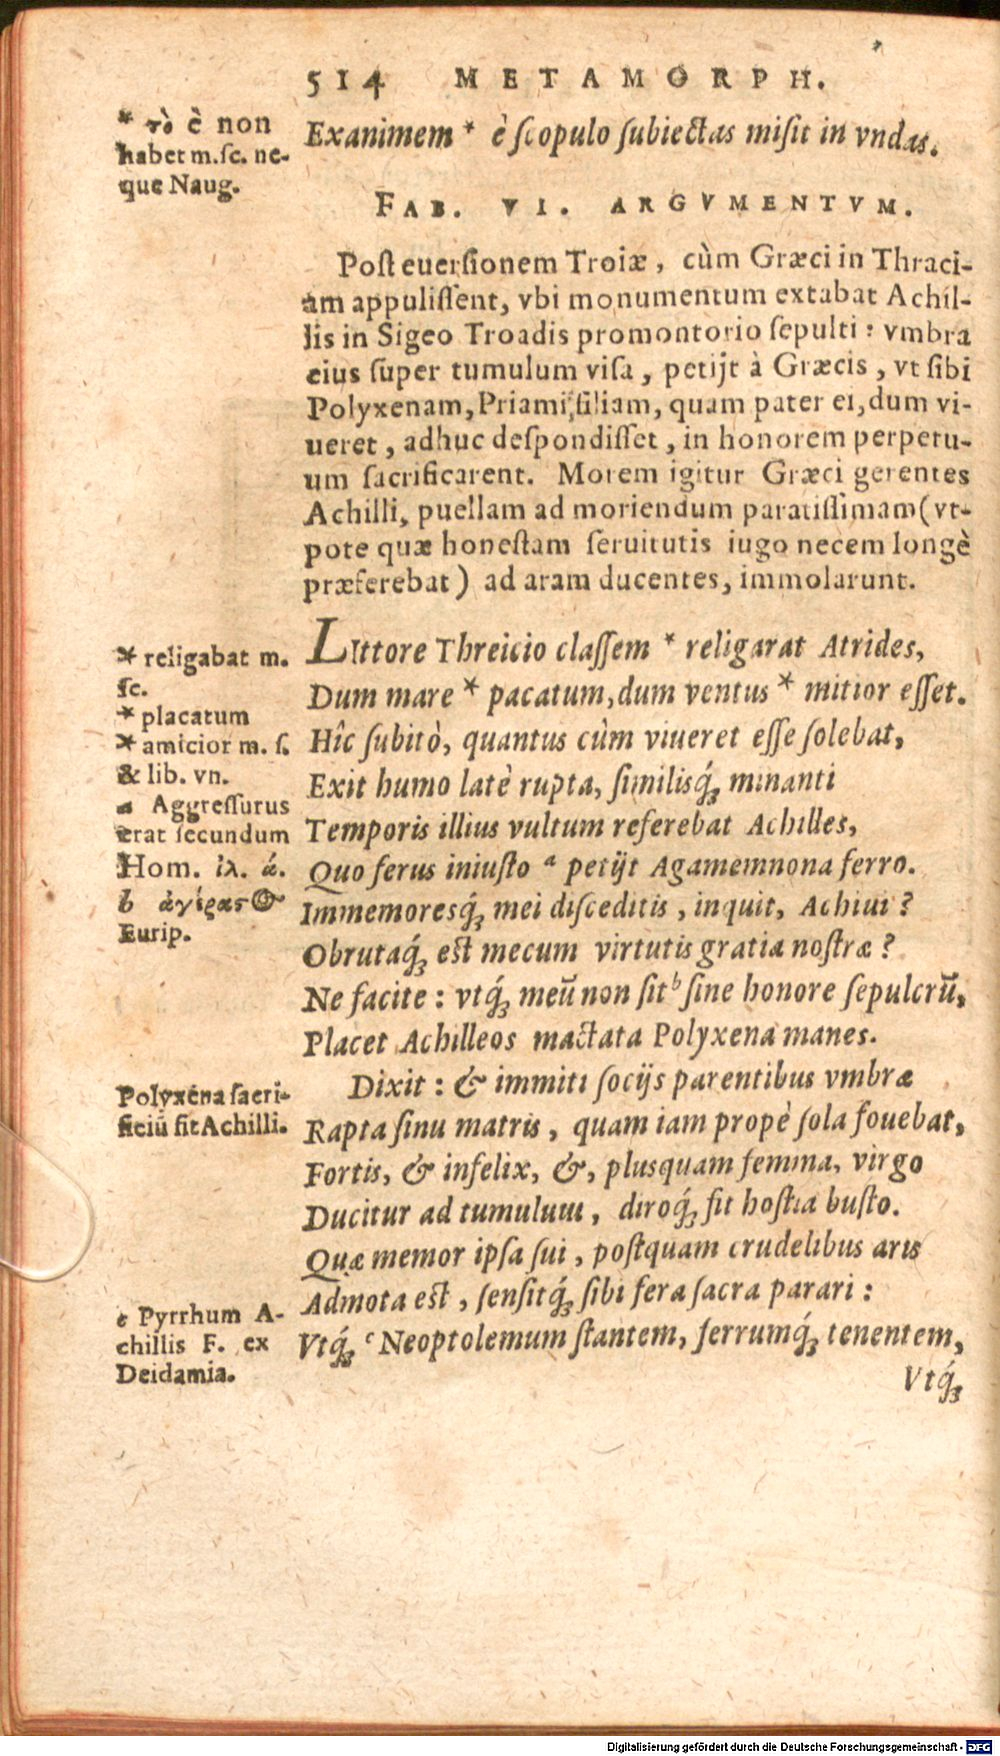 514 METAMORPH.
* τὸ è non
habet m.ſc. ne-
que Naug.
Exanimem * è ſcopulo ſubiectas miſit in vndas.
FAB. VI. ARGVMENTVM.
Poſt euerſionem Troiæ, cùm Græci in Thraci-
am appuliſſent, vbi monumentum extabat Achil-
lis in Sigeo Troadis promontorio ſepulti: vmbra
eius ſuper tumulum viſa, petijt à Græcis, vt ſibi
Polyxenam, Priami filiam, quam pater ei, dum vi-
ueret, adhuc deſpondiſſet, in honorem perpetu-
um ſacrificarent. Morem igitur Græci gerentes
Achilli, puellam ad moriendum paratiſſimam (vt-
pote quæ honeſtam ſeruitutis iugo necem longè
præferebat) ad aram ducentes, immolarunt.
* religabat m.
ſc.
* placatum
* amicior m. ſ.
& lib. vn.
a Aggreſſurus
erat ſecundum
Hom. ἰλ. ά.
b ἀγέρας⊙
Eurip.
LIttore Threicio claſſem * religarat Atrides,
Dum mare * pacatum, dum ventus * mitior eſſet.
Hîc ſubitò, quantus cùm viueret eſſe ſolebat,
Exit humo latè rupta, ſimilisq́; minanti
Temporis illius vultum referebat Achilles,
Quo ferus iniuſto a petijt Agamemnona ferro.
Immemoresq́; mei diſceditis, inquit, Achiui?
Obrutaq́; eſt mecum virtutis gratia noſtræ?
Ne facite: vtq́; meũ non ſit b ſine honore ſepulcrũ,
Placet Achilleos mactata Polyxena manes.
Polyxena ſacri-
ficiũ fit Achilli.
Dixit: & immiti ſocijs parentibus vmbræ
Rapta ſinu matris, quam iam propè ſola fouebat,
Fortis, & infelix, &, plusquam femina, virgo
Ducitur ad tumulum, diroq́; fit hoſtia buſto.
Quæ memor ipſa ſui, poſtquam crudelibus aris
Admota eſt, ſenſitq́; ſibi fera ſacra parari:
c Pyrrhum A-
chillis F. ex
Deidamia.
Vtq́; c Neoptolemum ſtantem, ferrumq́; tenentem,
Vtq́;
Digitalisierung gefördert durch die Deutsche Forschungsgemeinschaft - DFG